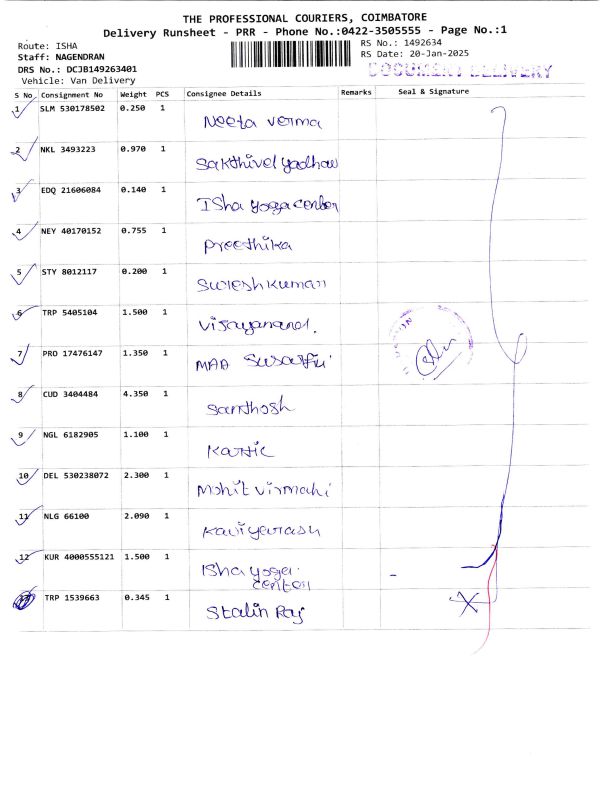 THE PROFESSIONAL COURIERS, COIMBATORE
Delivery Runsheet - PRR - Phone No.:0422-3505555 - Page No.:1
Route: ISHA
Staff: NAGENDRAN
DRS No.: DCJB149263401
Vehicle: Van Delivery
RS No.: 1492634
RS Date: 20-Jan-2025
DOCUMENT DELIVERY
S No. Consignment No Weight PCS Consignee Details Remarks Seal & Signature
1 SLM 530178502 0.250 1 Neeta verma
2 NKL 3493223 0.970 1 Sakthivel yadhav
3 EDQ 21606084 0.140 1 ISha yoga center
4 NEY 40170152 0.755 1 Preethika
5 STY 8012117 0.200 1 Sureshkumar
6 TRP 5405104 1.500 1 Vijayanand.
7 PRO 17476147 1.350 1 MAA
8 CUD 3404484 4.350 1 Santhosh
9 NGL 6182905 1.100 1 Kartic
10 DEL 530238072 2.300 1 Mohit Virmani
11 NLG 66100 2.090 1 Kaviyarash
12 KUR 4000555121 1.500 1 ISha yoga.
center
13 TRP 1539663 0.345 1 Stalin Raj